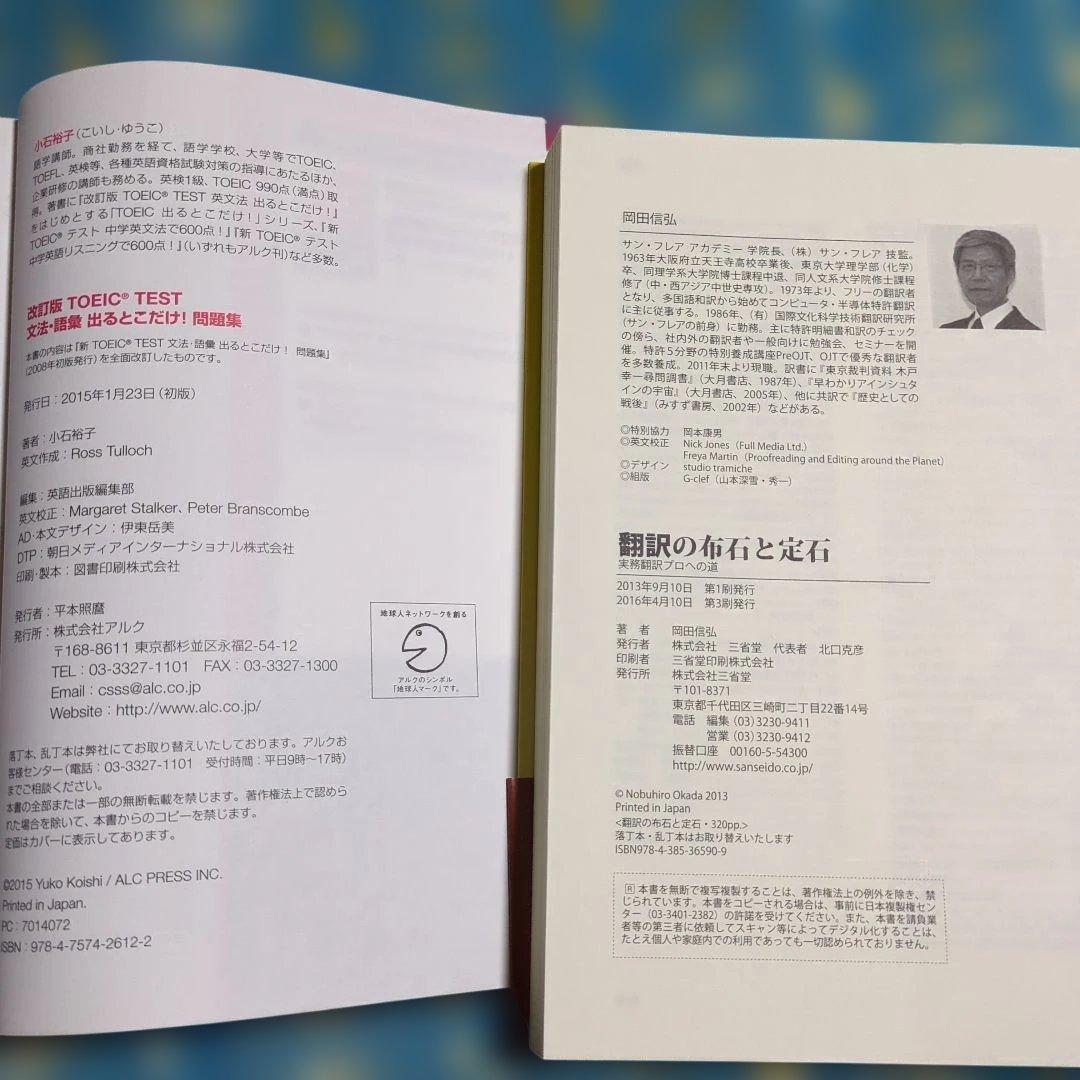 小石裕子(こいし・ゆうこ)
語学講師。商社勤務を経て、語学学校、大学等でTOEIC、
TOEFL、英検等、各種英語資格試験対策の指導にあたるほか、
企業研修の講師も務める。英検1級、TOEIC 990点(満点)取
得。著書に『改訂版 TOEIC® TEST 英文法 出るとこだけ!』
をはじめとする「TOEIC 出るとこだけ!」シリーズ、『新
TOEIC® テスト 中学英文法で600点!』『新 TOEIC® テスト
中学英語リスニングで600点!』(いずれもアルク刊)など多数。
改訂版 TOEIC® TEST
文法・語彙 出るとこだけ! 問題集
本書の内容は『新 TOEIC® TEST 文法・語彙 出るとこだけ! 問題集』
(2008年初版発行)を全面改訂したものです。
発行日:2015年1月23日(初版)
著者:小石裕子
英文作成:Ross Tulloch
編集:英語出版編集部
英文校正:Margaret Stalker、Peter Branscombe
AD・本文デザイン:伊東岳美
DTP:朝日メディアインターナショナル株式会社
印刷・製本:図書印刷株式会社
発行者:平本照麿
発行所:株式会社アルク
〒168-8611 東京都杉並区永福2-54-12
TEL:03-3327-1101 FAX:03-3327-1300
Email:csss@alc.co.jp
Website:http://www.alc.co.jp/
地球人ネットワークを創る
アルクのシンボル
「地球人マーク」です。
落丁本、乱丁本は弊社にてお取り替えいたしております。アルクお
客様センター(電話:03-3327-1101 受付時間:平日9時~17時)
までご相談ください。
本書の全部または一部の無断転載を禁じます。著作権法上で認めら
れた場合を除いて、本書からのコピーを禁じます。
定価はカバーに表示してあります。
©2015 Yuko Koishi / ALC PRESS INC.
Printed in Japan.
PC:7014072
ISBN:978-4-7574-2612-2
岡田信弘
サン・フレア アカデミー 学院長、(株)サン・フレア 技監。
1963年大阪府立天王寺高校卒業後、東京大学理学部(化学)
卒、同理学系大学院博士課程中退、同人文系大学院修士課程
修了(中・西アジア中世史専攻)。1973年より、フリーの翻訳者
となり、多国語和訳から始めてコンピュータ・半導体特許翻訳
に主に従事する。1986年、(有)国際文化科学技術翻訳研究所
(サン・フレアの前身)に勤務。主に特許明細書和訳のチェック
の傍ら、社内外の翻訳者や一般向けに勉強会、セミナーを開
催。特許5分野の特別養成講座PreOJT、OJTで優秀な翻訳者
を多数養成。2011年末より現職。訳書に『東京裁判資料 木戸
幸一尋問調書』(大月書店、1987年)、『早わかりアインシュタ
インの宇宙』(大月書店、2005年)、他に共訳で『歴史としての
戦後』(みすず書房、2002年)などがある。
◎特別協力 岡本康男
◎英文校正 Nick Jones(Full Media Ltd.)
Freya Martin(Proofreading and Editing around the Planet)
◎デザイン studio tramiche
◎組版 G-clef(山本深雪・秀一)
翻訳の布石と定石
実務翻訳プロへの道
2013年9月10日 第1刷発行
2016年4月10日 第3刷発行
著者 岡田信弘
発行者 株式会社 三省堂 代表者 北口克彦
印刷者 三省堂印刷株式会社
発行所 株式会社三省堂
〒101-8371
東京都千代田区三崎町二丁目22番14号
電話 編集(03)3230-9411
営業(03)3230-9412
振替口座 00160-5-54300
http://www.sanseido.co.jp/
© Nobuhiro Okada 2013
Printed in Japan
<翻訳の布石と定石・320pp.>
落丁本・乱丁本はお取り替えいたします
ISBN978-4-385-36590-9
R 本書を無断で複写複製することは、著作権法上の例外を除き、禁
じられています。本書をコピーされる場合は、事前に日本複製権セン
ター(03-3401-2382)の許諾を受けてください。また、本書を請負業
者等の第三者に依頼してスキャン等によってデジタル化することは、
たとえ個人や家庭内での利用であっても一切認められておりません。